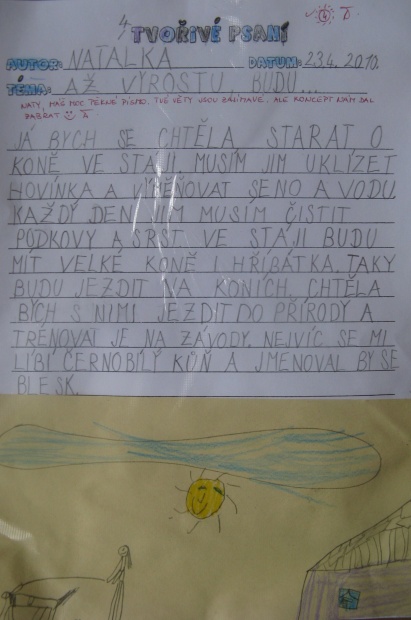 4,
TVOŘIVÉ PSANÍ
AUTOR: NATÁLKA DATUM: 23.4. 2010.
TÉMA: AŽ VYROSTU BUDU...
NATY, MÁŠ MOC PĚKNÉ PÍSMO. TVÉ VĚTY JSOU BÁJEČNÉ. ALE KONCEPT NÁM DAL
ZABRAT
JÁ BYCH SE CHTĚLA STARAT O
KONĚ VE STÁJI. MUSÍM JIM UKLÍZET
HOVÍNKA A VYMĚŇOVAT SENO A VODU.
KAŽDÝ DEN JIM MUSÍM ČISTIT
PODKOVY A SRST VE STÁJI BUDU
MÍT VELKÉ KONĚ I HŘÍBÁTKA. TAKY
BUDU JEZDIT NA KONÍCH. CHTĚLA
BYCH S NIMI JEZDIT DO PŘÍRODY A
TRÉNOVAT JE NA ZÁVODY. NEJVÍC SE MI
LÍBÍ ČERNOBÍLÝ KŮŇ A JMENOVAL BY SE
BLESK.